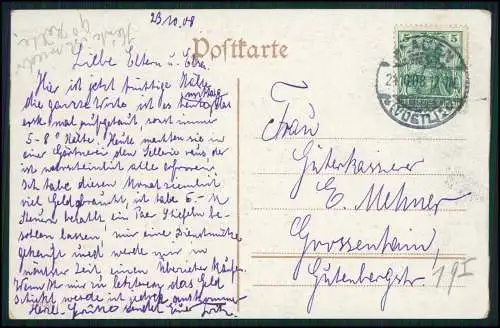 23.10.08
Postkarte
Liebe Eltern u. Else.
Hier ist jetzt tüchtige Kälte
die ganze Woche ist es heute
erste mal aufgetaut, sonst immer
5-8° Kälte. Heute machten sie in
einer Gärtnerei den Sellerie raus, der
ist wahrscheinlich alle erfroren.
Ich habe diesen Monat ziemlich
viel Geld gebraucht, ich habe 5.- M
Steuern bezahlt ein Paar Stiefeln be-
sohlen lassen, mir eine Dienstmütze
gekauft und werde mir in
nächster Zeit einen Überzieher kaufen.
Wenn ihr mir zu letzterem das Geld
schickt werde ich auskommen
Herzl. Grüße sendet Euer
PLAUEN
(VOGTL.)
5 5
Frau
Güterkassierer
E. Mehner
Grossenhain,
Gutenbergstr. 19 I